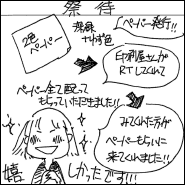 祭待
2色ペーパー
ペーパー発行!!
印刷屋さんが
RTしてくれて
ペーパー全て配って
もらっていただきました!!
みてくれた方が
ペーパーもらいに
来てくれました!!
嬉しかったです!!!